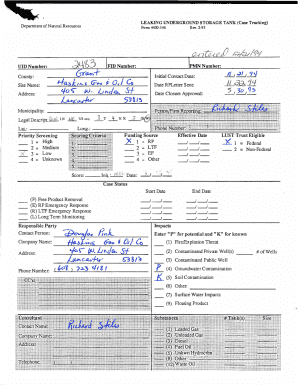 Department of Natural Resources
LEAKING UNDERGROUND STORAGE TANK (Case Tracking)
Form 4400-146 Rev. 2-93
entered
UID Number: 2483 FID Number: PMN Number:
County: Grant
Site Name: Haskins Gas & Oil Co
Address: 405 W. Linden St
Lancaster 53813
Initial Contact Date: 11.21.94
Date RP Letter Sent: 11.22.94
Date Closure Approved: 5.30.95
Municipality:
Legal Descrip:
Person/Firm Reporting: Richard Stiles
Phone Number:
Lat.: Long.:
Priority Screening Scoring Criteria Funding Source Effective Date LUST Trust Eligible
1 = High X 1 = RP X 1 = Federal
2 = Medium 2 = LTF 2 = Non-Federal
X 3 = Low 3 = EF
4 = Unknown 4 = Other
Score: Init. Date:
Case Status
Start Date End Date
(P) Free Product Removal
(R) RP Emergency Response
(E) LTF Emergency Response
(L) Long Term Monitoring
Responsible Party
Contact Person: Douglas Pink
Company Name: Haskins Gas & Oil Co
Address: 405 W. Linden St
Lancaster 53813
Phone Number: 608, 723 4131
CC's:
Impacts
Enter "P" for potential and "K" for known
(1) Fire/Explosion Threat
(2) Contaminated Private Well(s) # of Wells
(3) Contaminated Public Well
P (4) Groundwater Contamination
K (5) Soil Contamination
(6) Other
(7) Surface Water Impacts
(8) Floating Product
Consultant
Contact Name: Richard Stiles
Company Name:
Address:
Telephone:
Substances # Tank(s) Size
(1) Leaded Gas
(2) Unleaded Gas
(3) Diesel
(4) Fuel Oil
(5) Unkwn Hydrocbn
(6) Other
(10) Waste Oil